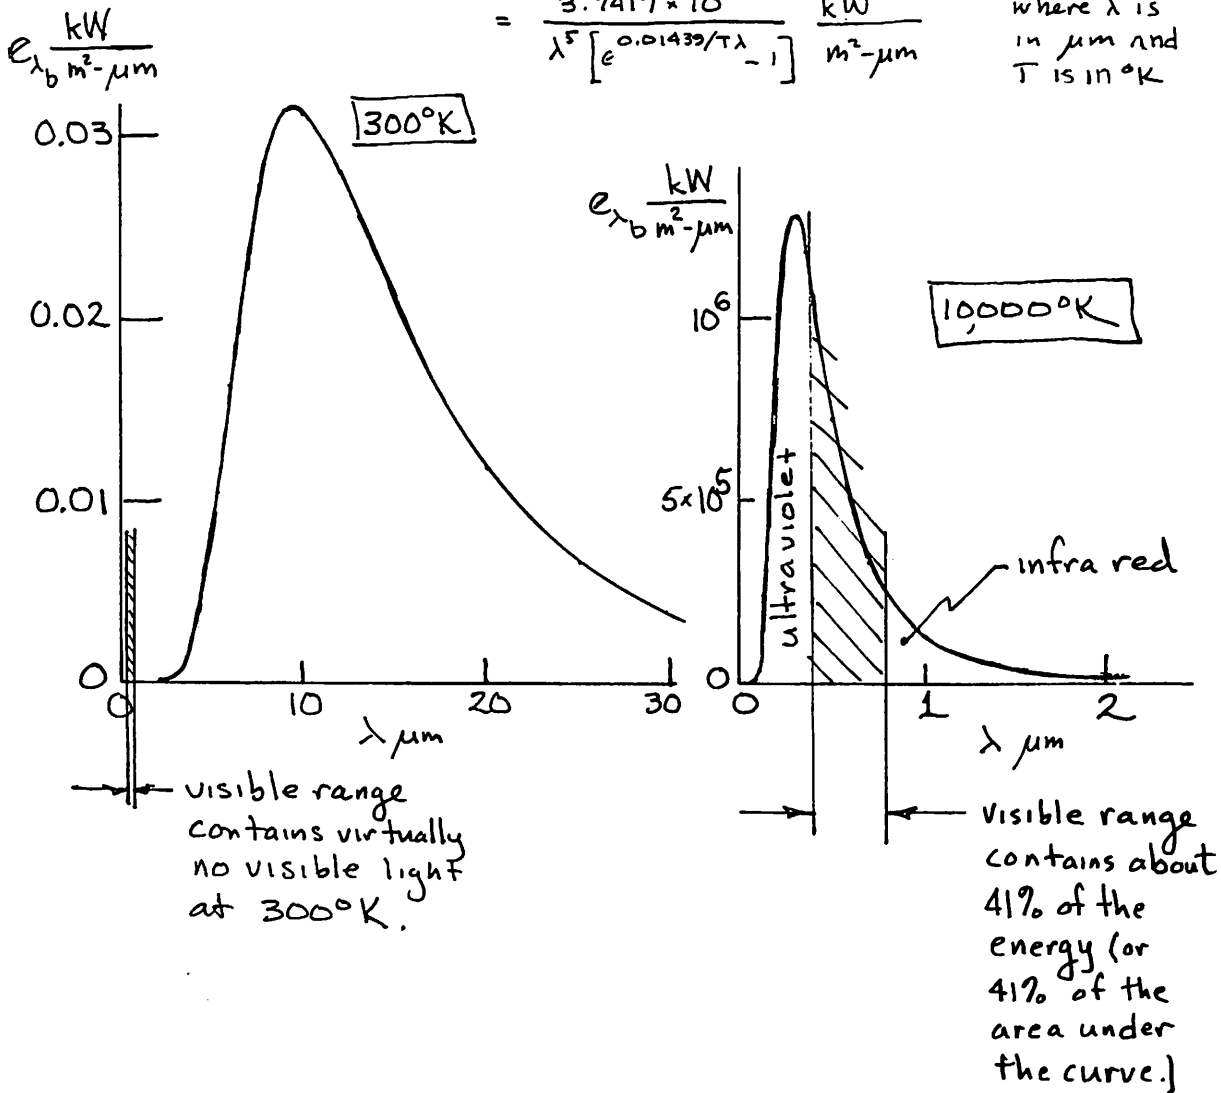 e_λb kW/m²-μm
= 3.7417×10 / λ⁵[e^0.01439/Tλ - 1] kW/m²-μm
where λ is
in μm and
T is in °K
300°K
0.03
0.02
0.01
0
0 10 20 30
λ μm
visible range
contains virtually
no visible light
at 300°K.
e_λb kW/m²-μm
10,000°K
10⁶
5×10⁵
0
ultraviolet
infra red
0 1 2
λ μm
visible range
contains about
41% of the
energy (or
41% of the
area under
the curve.]